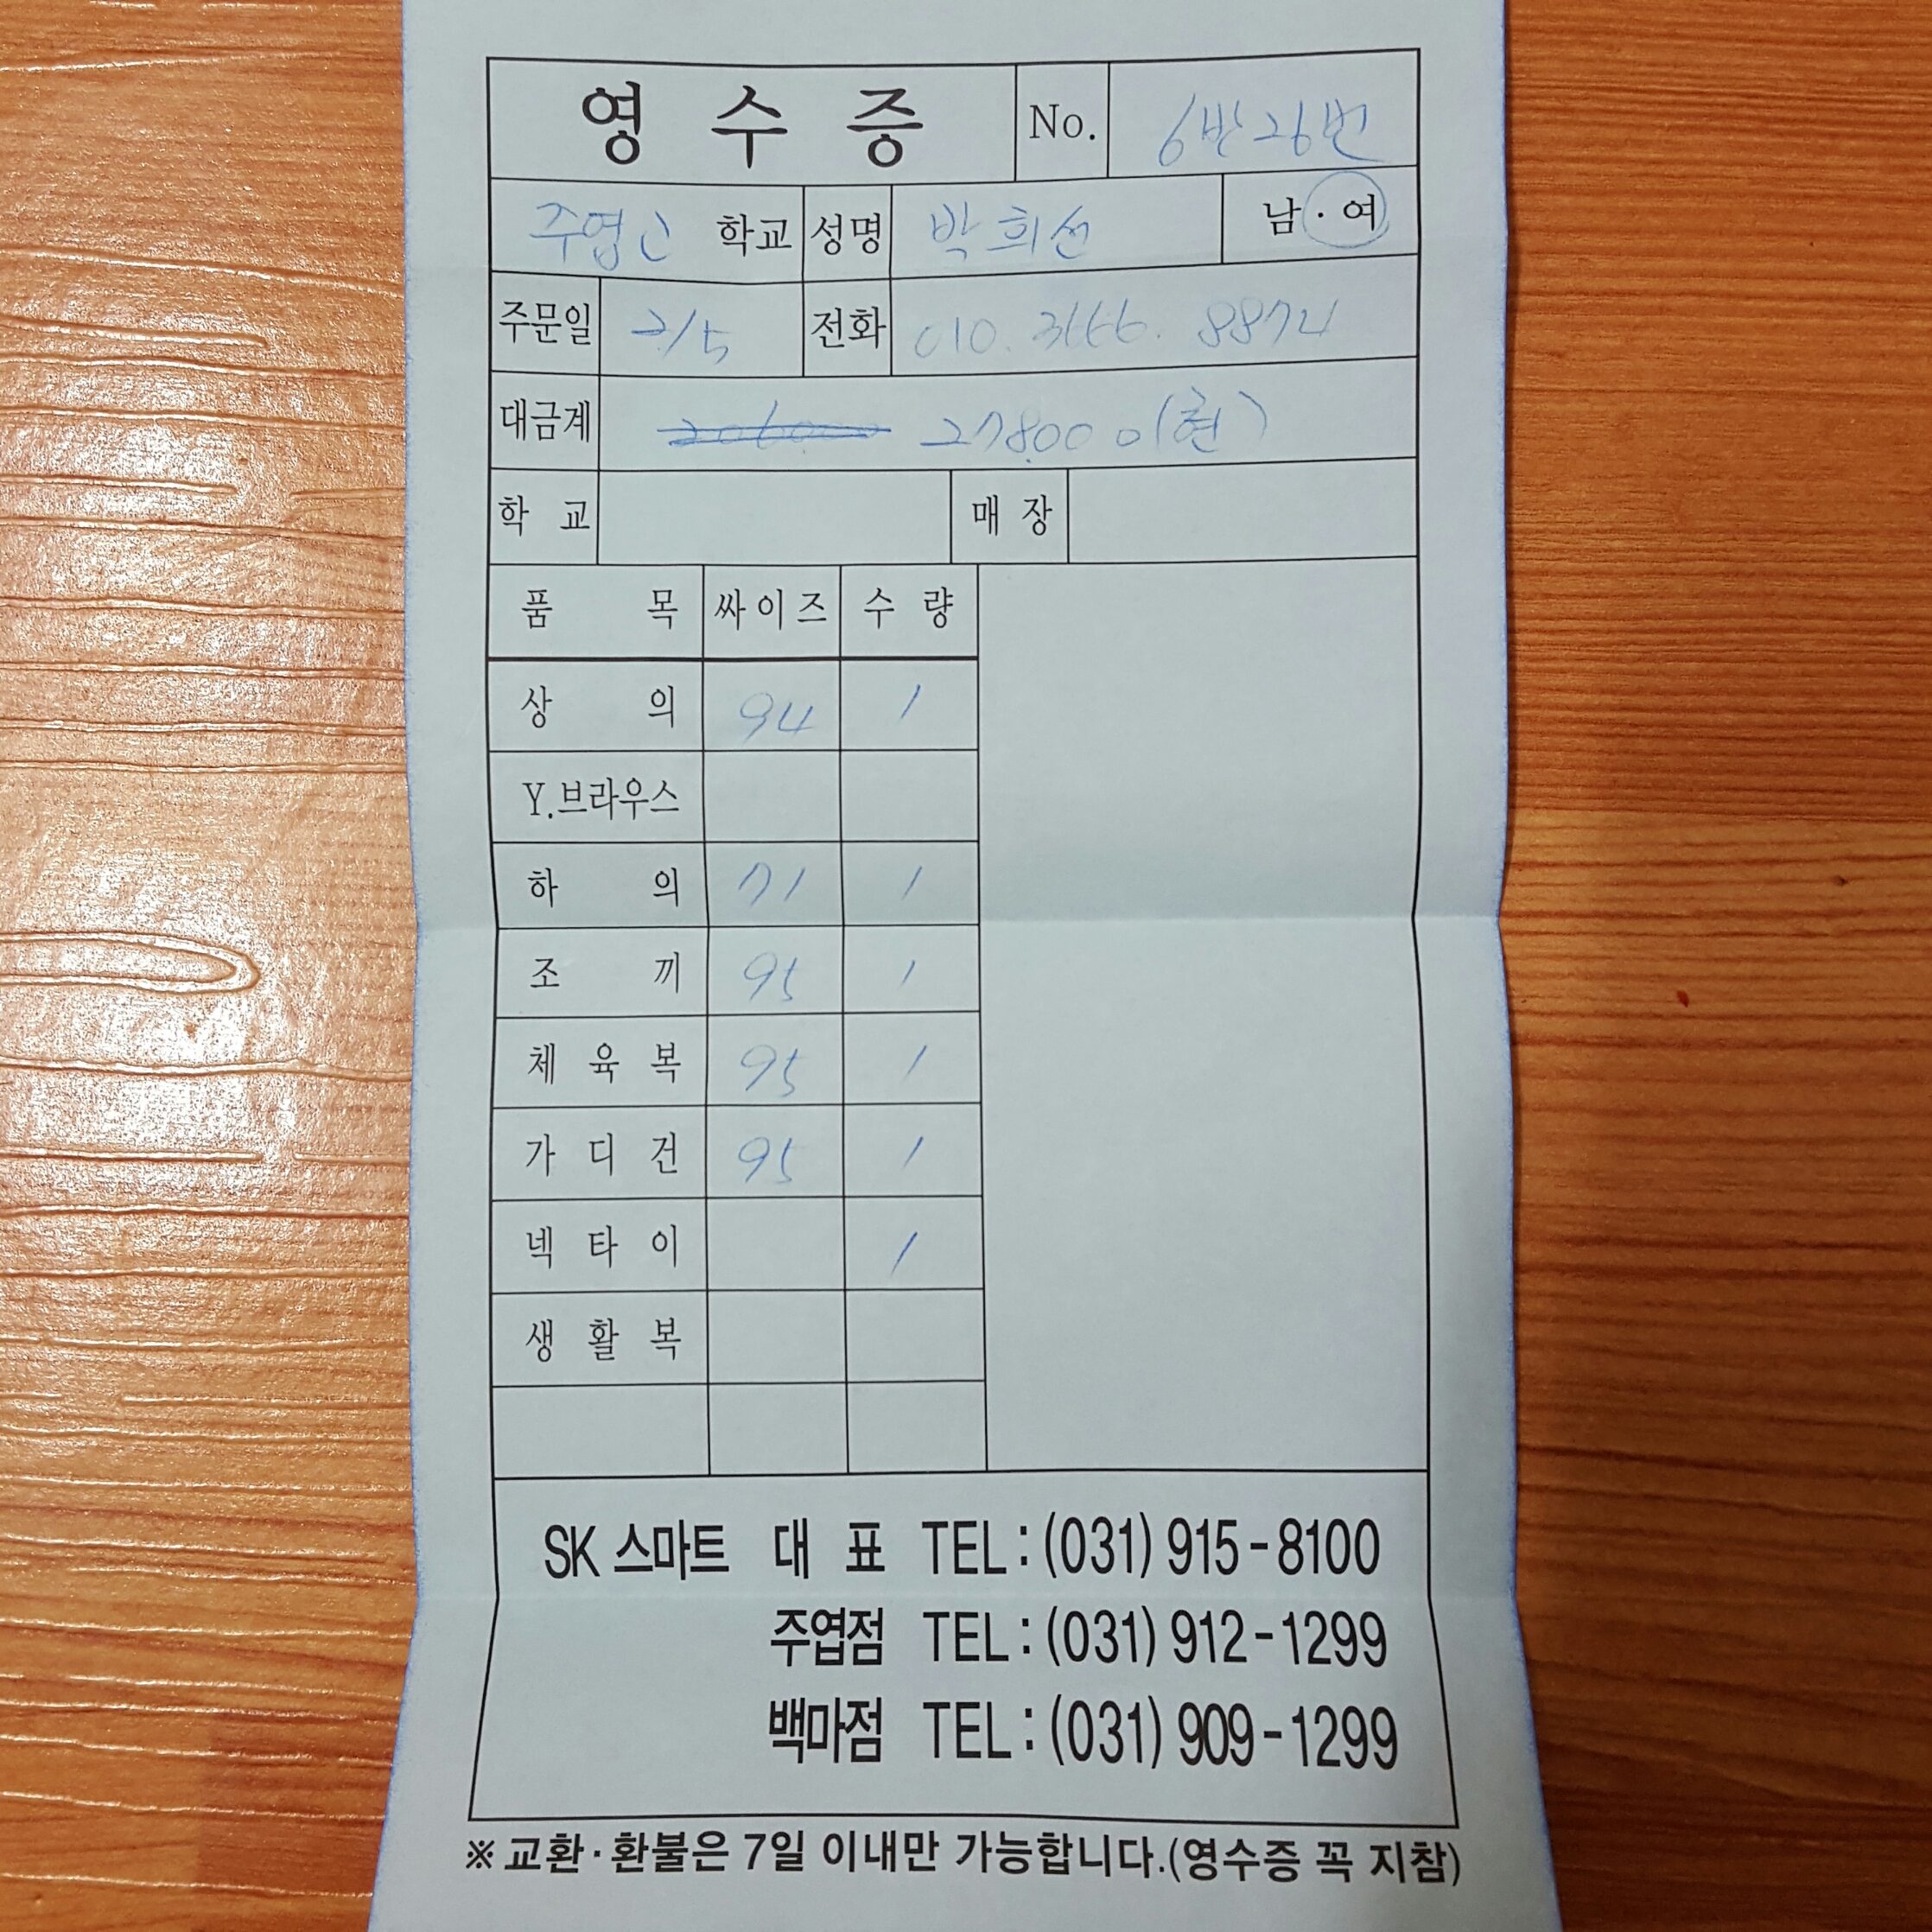 영 수 증 No. 6반 26번
주엽고 학교 성명 박희선 남 · 여
주문일 2/5 전화 010. 3166. 8874
대금계 206000 278000 (현)
학 교 매 장
품 목 싸이즈 수 량
상 의 94 1
Y.브라우스
하 의 71 1
조 끼 95 1
체 육 복 95 1
가 디 건 95 1
넥 타 이 1
생 활 복
SK 스마트 대 표 TEL : (031) 915-8100
주엽점 TEL : (031) 912-1299
백마점 TEL : (031) 909-1299
※ 교환·환불은 7일 이내만 가능합니다.(영수증 꼭 지참)